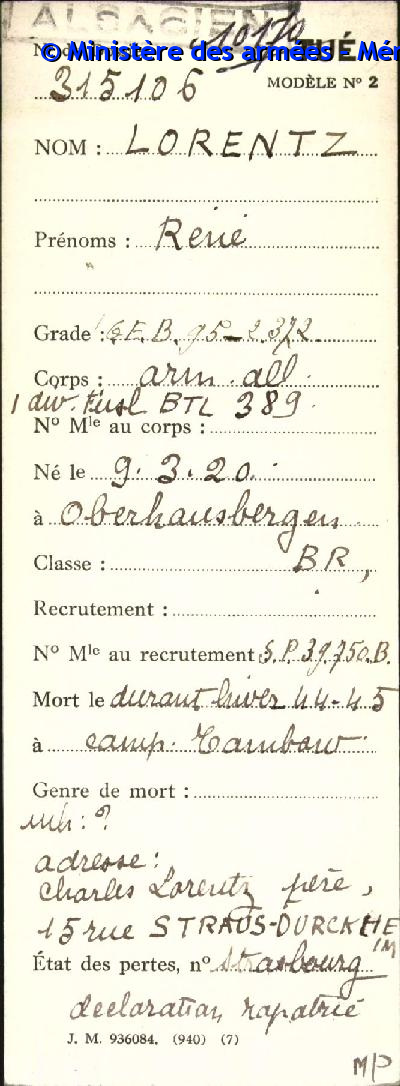 ALSACIEN
© Ministère des armées - Mém
10170 TUÉ
MODÈLE Nº 2
315106
NOM : LORENTZ
Prénoms : René
Grade : G.E.B. 95-2.372
Corps : arm. all.
1 div. Füsl BTL 389.
Nº Mle au corps :
Né le 9.3.20.
à Oberhausbergen
Classe : BR,
Recrutement :
Nº Mle au recrutement : S.P. 39.750.B.
Mort le durant hiver 44-45
à camp. Tambow
Genre de mort :
inh : ?
adresse :
Charles Lorentz père,
15 rue STRAUS-DURCKHEIM
État des pertes, nº Strasbourg
declaration rapatrié
J. M. 936084. (940) (7)
MP